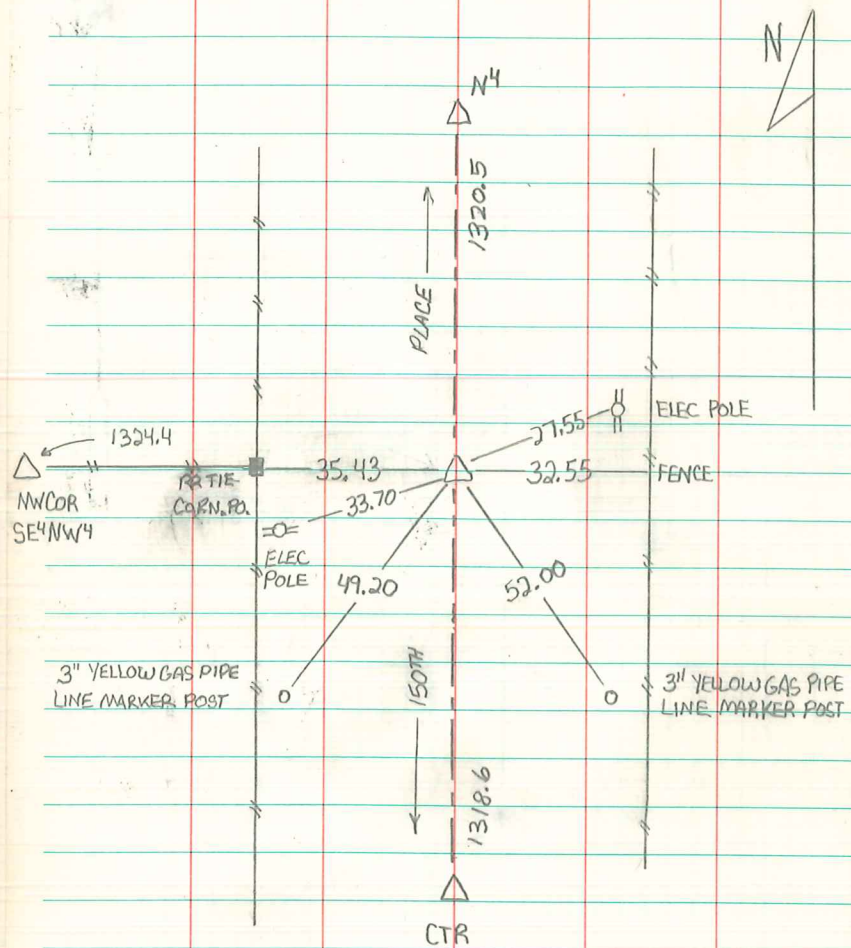 N
N4
1320.5
PLACE
27.55
ELEC POLE
1324.4
NWCOR
SE4NW4
RR TIE
CORN. PO.
35.43
32.55
FENCE
33.70
ELEC
POLE
49.20
52.00
3" YELLOW GAS PIPE
LINE MARKER POST
3" YELLOW GAS PIPE
LINE MARKER POST
150TH
1318.6
CTR